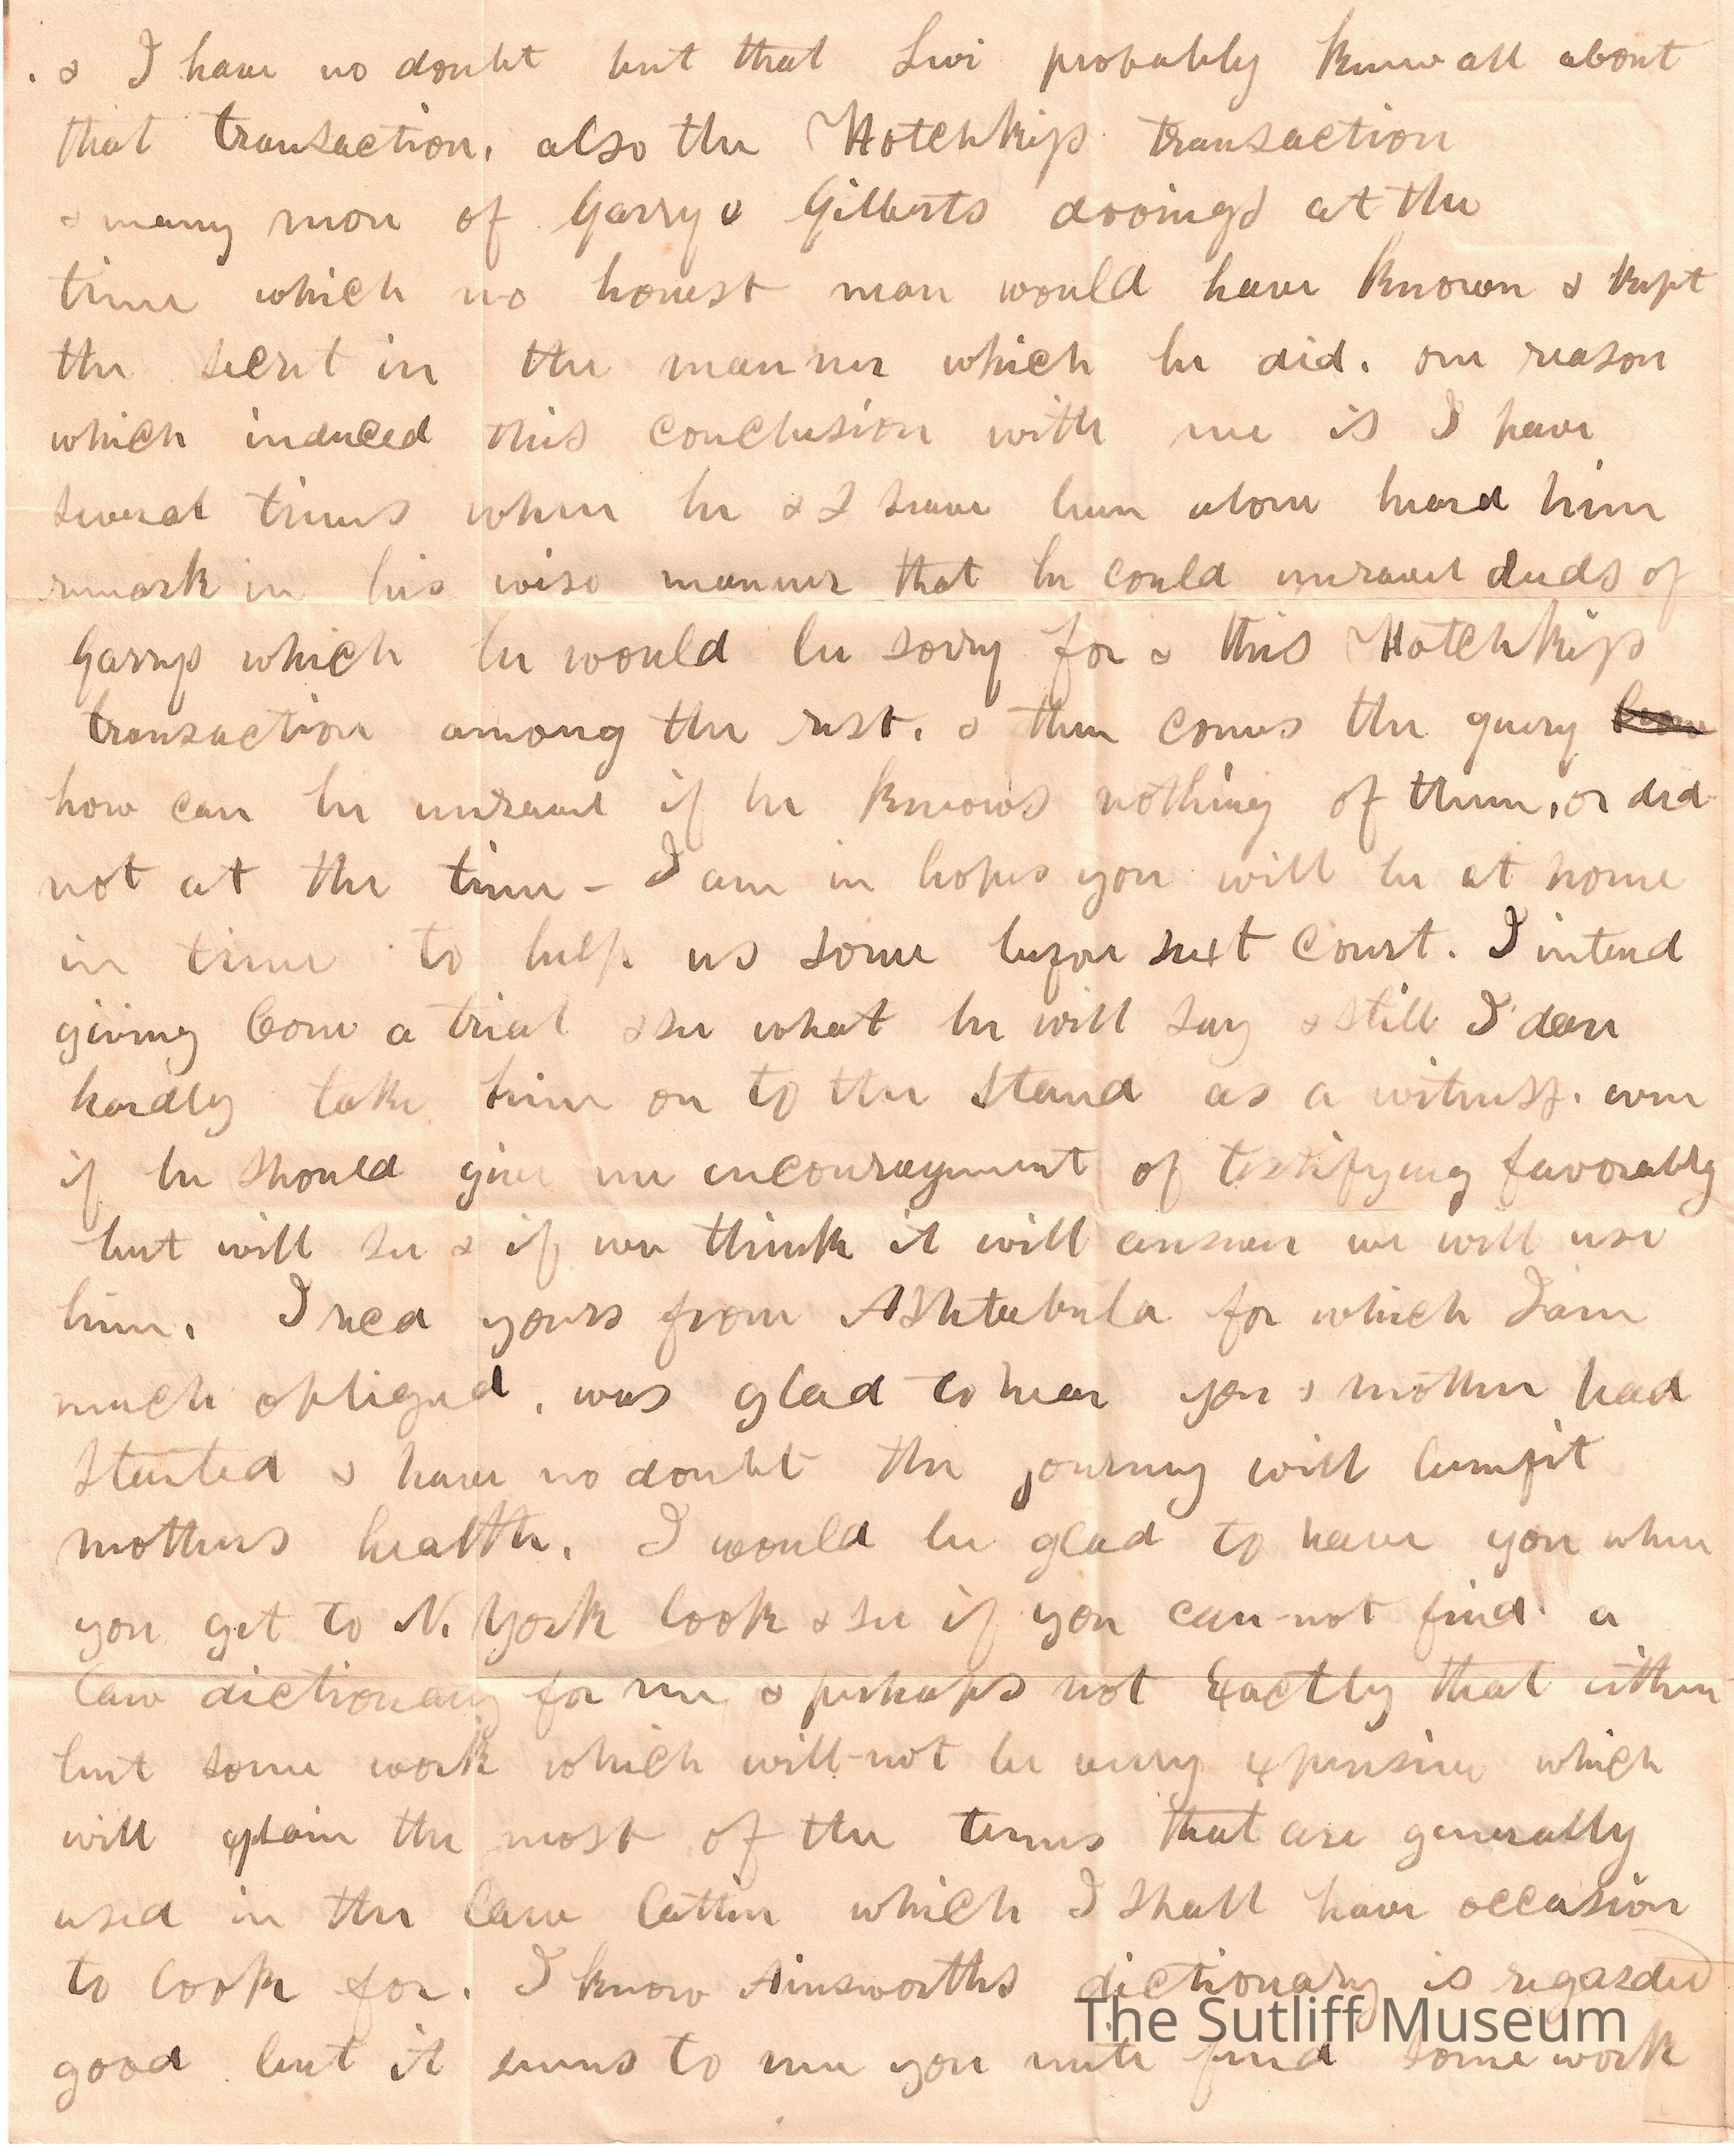 . & I have no doubt but that Levi probably knew all about
that transaction, also the Hotchkiss transaction
& many more of Garry & Gilberts dooings at the
time which no honest man would have known & kept
the secret in the manner which he did. one reason
which induced this conclusion with me is I have
several times when he & I have been alone heard him
remark in his wise manner that he could unravel deeds of
Garrys which he would be sorry for & this Hotchkiss
transaction among the rest. & then comes the query
how can he unravel if he knows nothing of them, or did
not at the time - I am in hopes you will be at home
in time to help us some before next court. I intend
giving Cone a trial & see what he will say & still I dare
hardly take him on to the stand as a witness. even
if he should give me encouragement of testifying favorably
but will see & if we think it will answer we will use
him. I recd yours from Ashtabula for which I am
much obliged, was glad to hear you & mother had
started & have no doubt the journey will benefit
mothers health. I would be glad to have you when
you get to N. York look & see if you can-not find a
law dictionary for me & perhaps not Exactly that either
but some work which will-not be very expensive which
will explain the most of the terms that are generally
used in the law lattin which I shall have occasion
to look for. I know Ainsworths dictionary is regarded
good but it seems to me you mite find some work
The Sutliff Museum